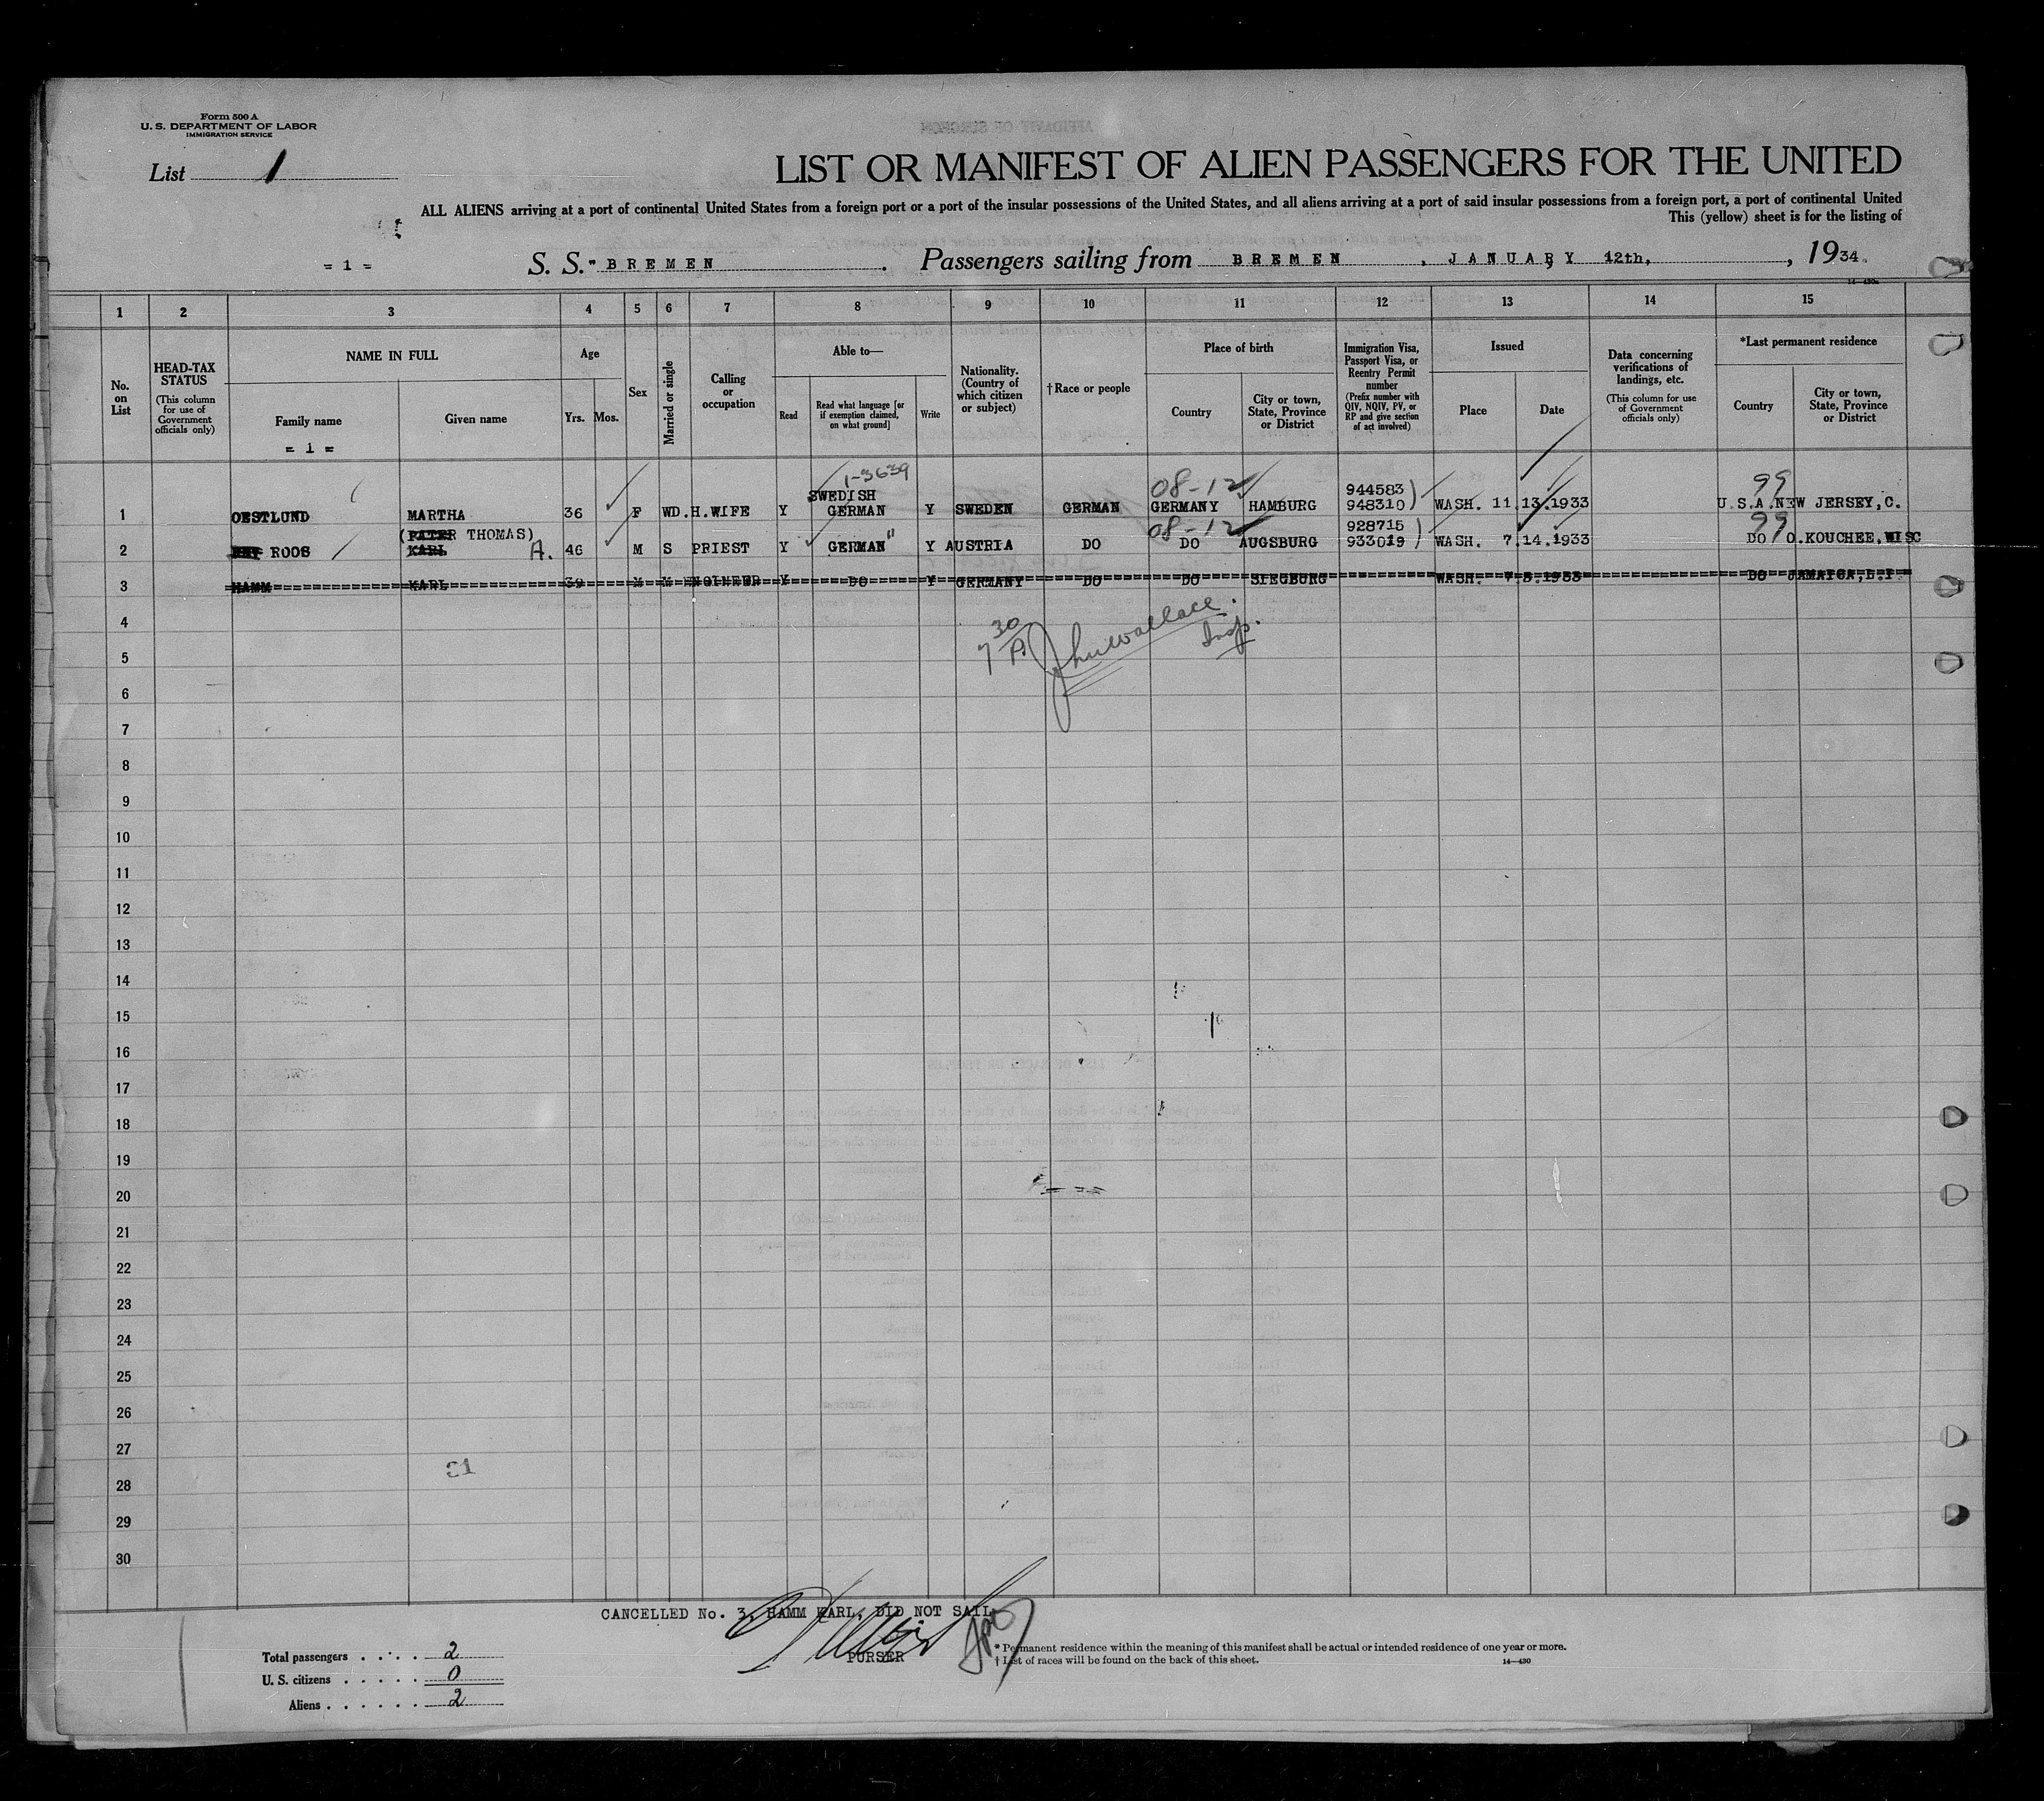 Form 500 A
U. S. DEPARTMENT OF LABOR
IMMIGRATION SERVICE
List 1
LIST OR MANIFEST OF ALIEN PASSENGERS FOR THE UNITED
ALL ALIENS arriving at a port of continental United States from a foreign port or a port of the insular possessions of the United States, and all aliens arriving at a port of said insular possessions from a foreign port, a port of continental United
This (yellow) sheet is for the listing of
= 1 =
S. S. "BREMEN Passengers sailing from BREMEN, JANUARY 12th, 1934.
1 2 3 4 5 6 7 8 9 10 11 12 13 14 15
No. on List
HEAD-TAX STATUS (This column for use of Government officials only)
NAME IN FULL
Family name
Given name
= 1 =
Age
Yrs. Mos.
Sex
Married or single
Calling or occupation
Able to—
Read
Read what language [or if exemption claimed, on what ground]
Write
Nationality. (Country of which citizen or subject)
†Race or people
Place of birth
Country
City or town, State, Province or District
Immigration Visa, Passport Visa, or Reentry Permit number (Prefix number with QIV, NQIV, PV, or RP and give section of act involved)
Issued
Place
Date
Data concerning verifications of landings, etc. (This column for use of Government officials only)
*Last permanent residence
Country
City or town, State, Province or District
1-3639 08-12 99
SWEDISH 944583
1 OESTLUND MARTHA 36 F WD. H.WIFE Y GERMAN Y SWEDEN GERMAN GERMANY HAMBURG 948310) WASH. 11.13.1933 U.S.A. NEW JERSEY, C.
(PATER THOMAS) 08-12 928715 99
2 ROOS KARL A. 46 M S PRIEST Y GERMAN " Y AUSTRIA DO DO AUGSBURG 933019) WASH. 7.14.1933 DO O.KOUCHEE, WISC
3 HAMM KARL 39 M M ENGINEER Y DO Y GERMANY DO DO SIEGBURG WASH. 7.5.1933 DO JAMAICA, L.I.
4
7 30 A Jhuwallace. Insp.
5
6
7
8
9
10
11
12
13
14
15
16
17
18
19
20
21
22
23
24
25
26
27
28
29
30
CANCELLED No. 3, HAMM KARL, DID NOT SAIL
PURSER
Total passengers 2
U. S. citizens 0
Aliens 2
* Permanent residence within the meaning of this manifest shall be actual or intended residence of one year or more.
† List of races will be found on the back of this sheet.
14—430